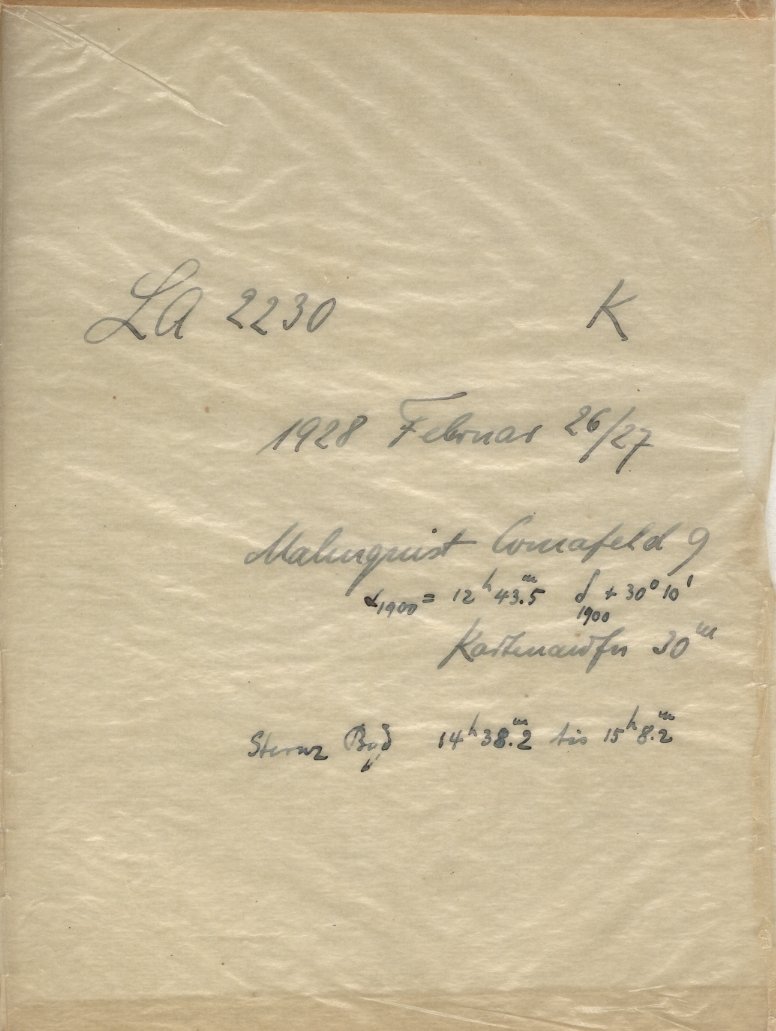 LA 2230 K
1928 Februar 26/27
Malmquist Comafeld 9
α1900 = 12ʰ 43.ᵐ5 δ1900 + 30° 10'
Kartenaufn 30ᵐ
Sternz Bgd 14ʰ 38.ᵐ2 bis 15ʰ 8.ᵐ2